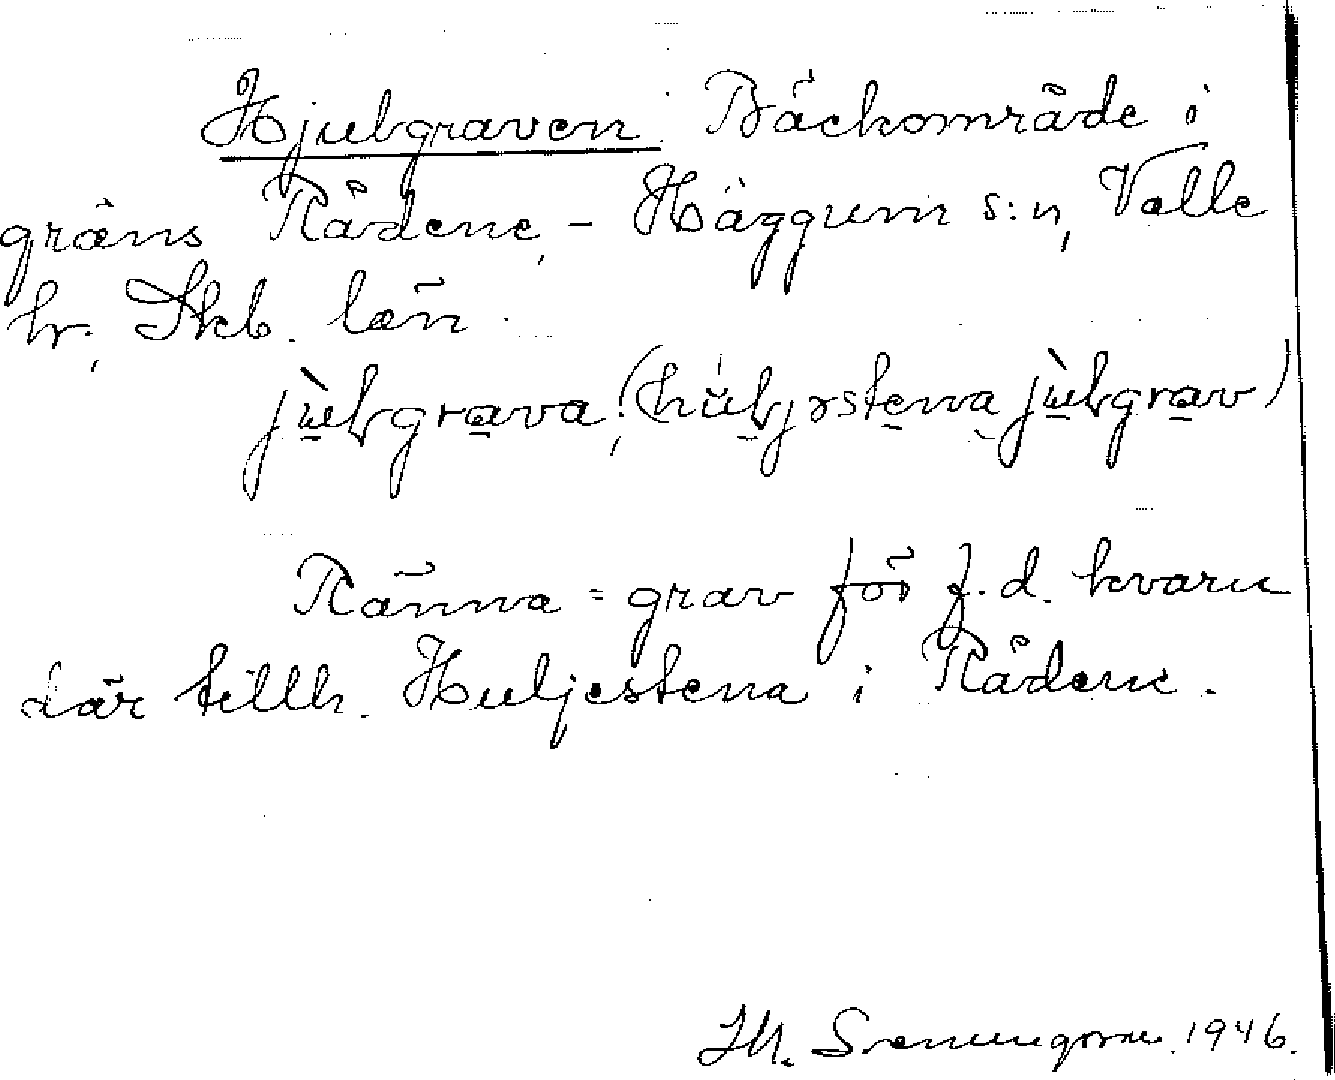 Hjulgraven. Bäckområde i
gräns Rådene, - Häggum s:n, Valle
hr, Skb. län.
jùlgrava, (húljrstena jùlgrav)
Ränna = grav för f.d. kvarn
där tillh. Huljestena i Rådene.
1946.